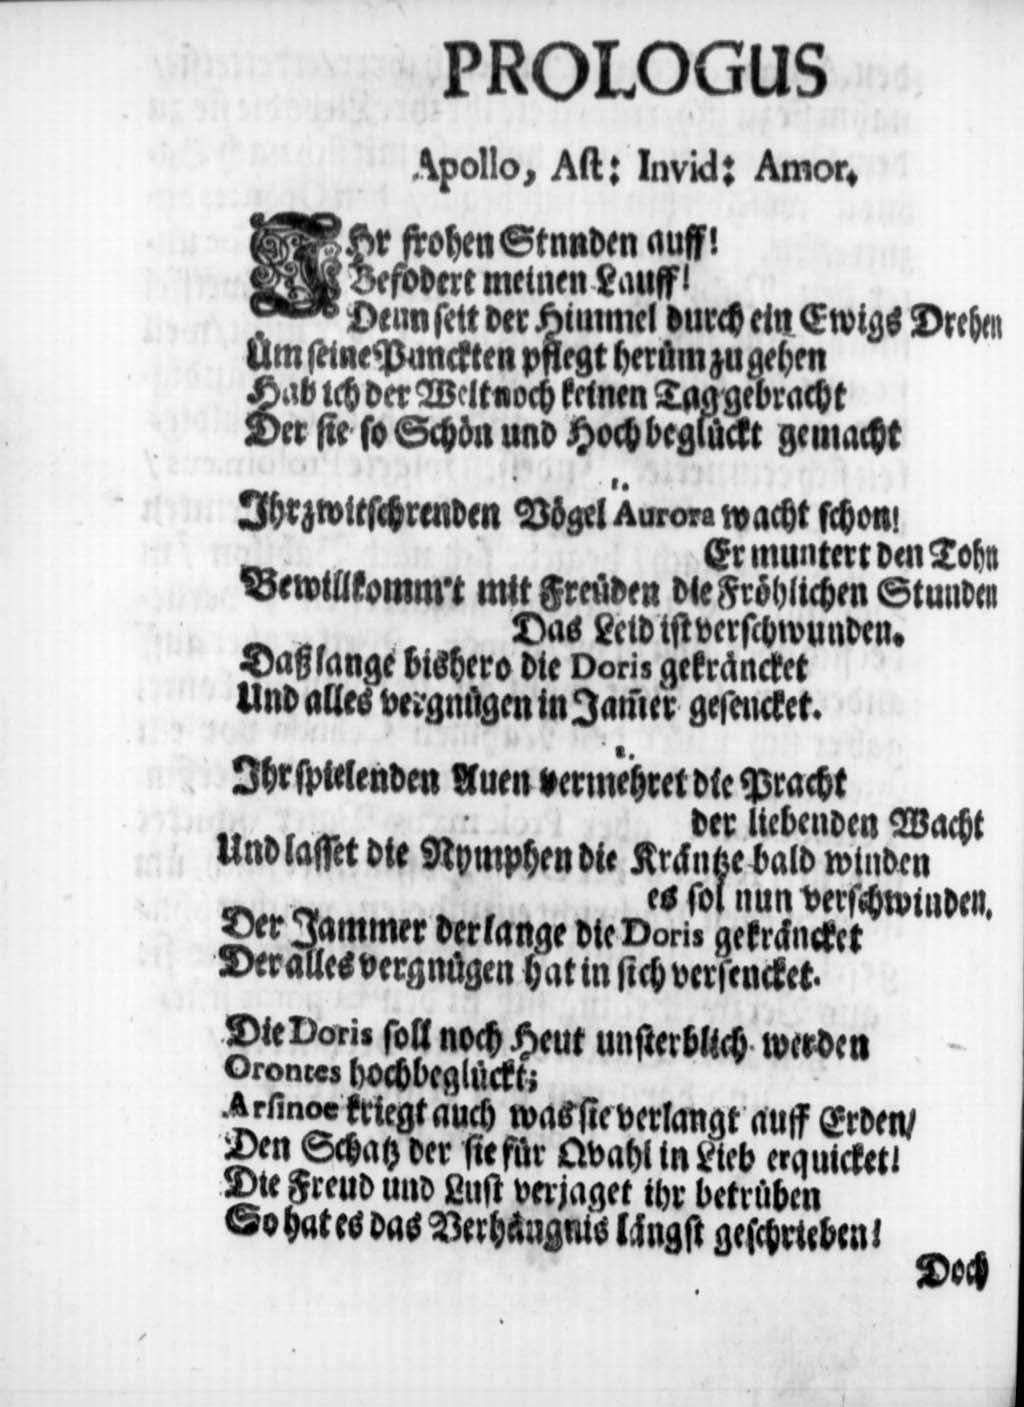 PROLOGUS
Apollo, Ast: Invid: Amor.
IHr frohen Stnnden auff!
Befodert meinen Lauff!
Denn seit der Himmel durch ein Ewigs Drehen
Üm seine Punckten pflegt herüm zu gehen
Hab ich der Welt noch keinen Tag gebracht
Der sie so Schön und Hoch beglückt gemacht
Ihr zwitschrenden Vögel Aurora wacht schon!
Er muntert den Tohn
Bewillkomm't mit Freüden die Fröhlichen Stunden
Das Leid ist verschwunden.
Daß lange bishero die Doris gekräncket
Und alles vergnügen in Jam̃er gesencket.
2.
Ihr spielenden Auen vermehret die Pracht
der liebenden Wacht
Und lasset die Nymphen die Kräntze bald winden
es sol nun verschwinden.
Der Jammer der lange die Doris gekräncket
Der alles vergnügen hat in sich versencket.
Die Doris soll noch Heut unsterblich werden
Orontes hochbeglückt;
Arsinoe kriegt auch was sie verlangt auff Erden/
Den Schatz der sie für Qvahl in Lieb erquicket!
Die Freud und Lust verjaget ihr betrüben
So hat es das Verhängnis längst geschrieben!
Doch